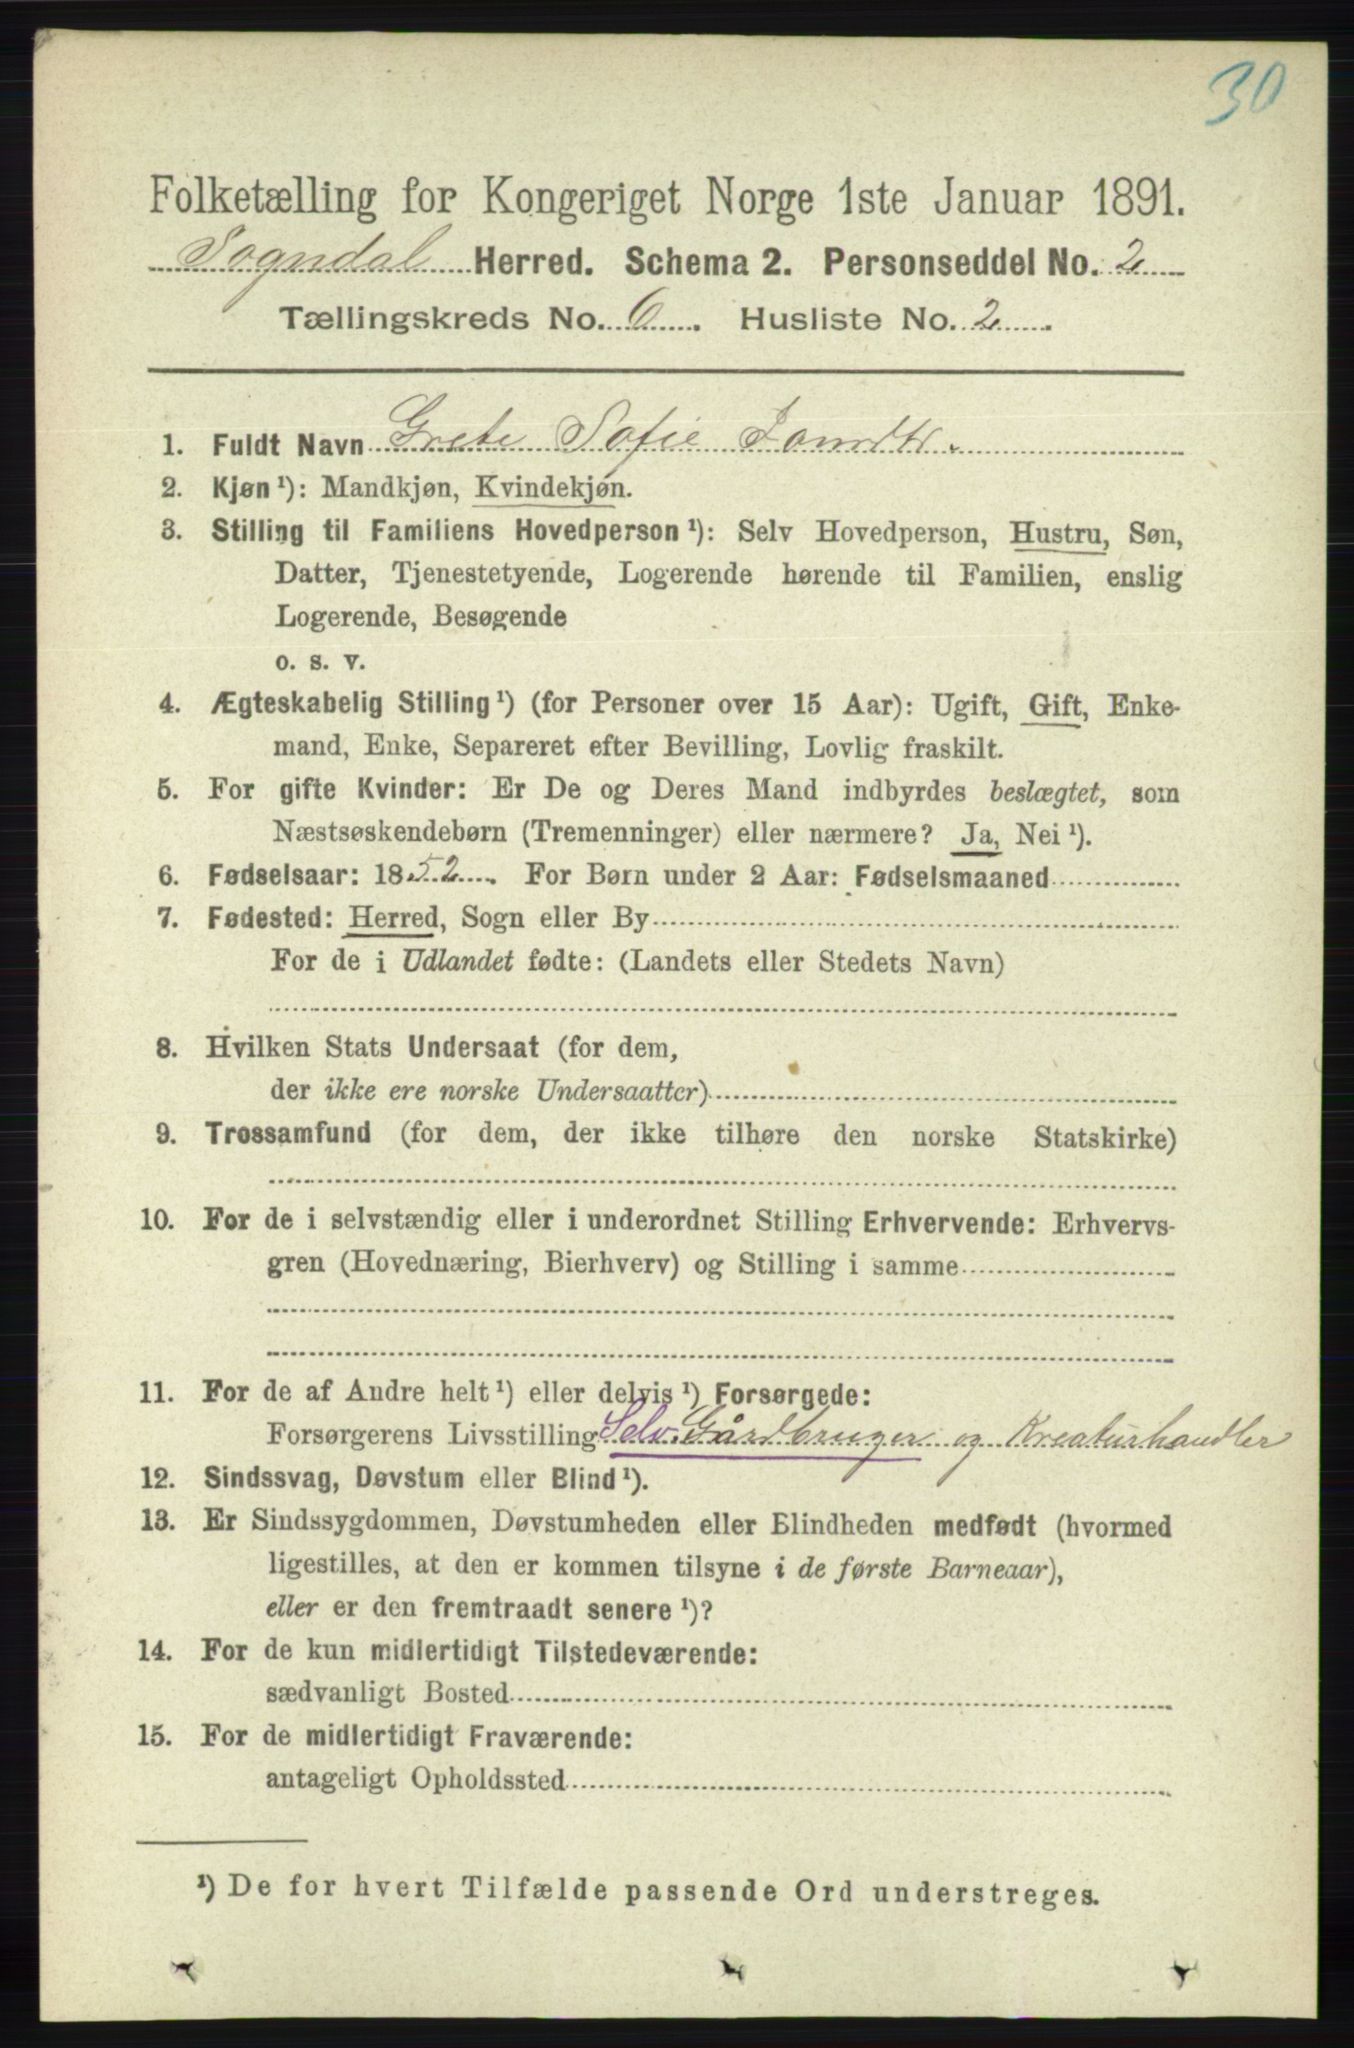 30
Folketælling for Kongeriget Norge 1ste Januar 1891.
Sogndal Herred. Schema 2. Personseddel No. 2
Tællingskreds No. 6. Husliste No. 2.
1. Fuldt Navn Grete Sofie
2. Kjøn ¹): Mandkjøn, Kvindekjøn.
3. Stilling til Familiens Hovedperson ¹): Selv Hovedperson, Hustru, Søn,
Datter, Tjenestetyende, Logerende hørende til Familien, enslig
Logerende, Besøgende
o. s. v.
4. Ægteskabelig Stilling ¹) (for Personer over 15 Aar): Ugift, Gift, Enke-
mand, Enke, Separeret efter Bevilling, Lovlig fraskilt.
5. For gifte Kvinder: Er De og Deres Mand indbyrdes beslægtet, som
Næstsøskendebørn (Tremenninger) eller nærmere? Ja, Nei ¹).
6. Fødselsaar: 1852. For Børn under 2 Aar: Fødselsmaaned
7. Fødested: Herred, Sogn eller By
For de i Udlandet fødte: (Landets eller Stedets Navn)
8. Hvilken Stats Undersaat (for dem,
der ikke ere norske Undersaatter)
9. Trossamfund (for dem, der ikke tilhøre den norske Statskirke)
10. For de i selvstændig eller i underordnet Stilling Erhvervende: Erhvervs-
gren (Hovednæring, Bierhverv) og Stilling i samme
11. For de af Andre helt ¹) eller delvis ¹) Forsørgede:
Forsørgerens Livsstilling Selv. Gårdbruger og Kreaturhandler
12. Sindssvag, Døvstum eller Blind ¹).
13. Er Sindssygdommen, Døvstumheden eller Blindheden medfødt (hvormed
ligestilles, at den er kommen tilsyne i de første Barneaar),
eller er den fremtraadt senere ¹)?
14. For de kun midlertidigt Tilstedeværende:
sædvanligt Bosted
15. For de midlertidigt Fraværende:
antageligt Opholdssted
¹) De for hvert Tilfælde passende Ord understreges.